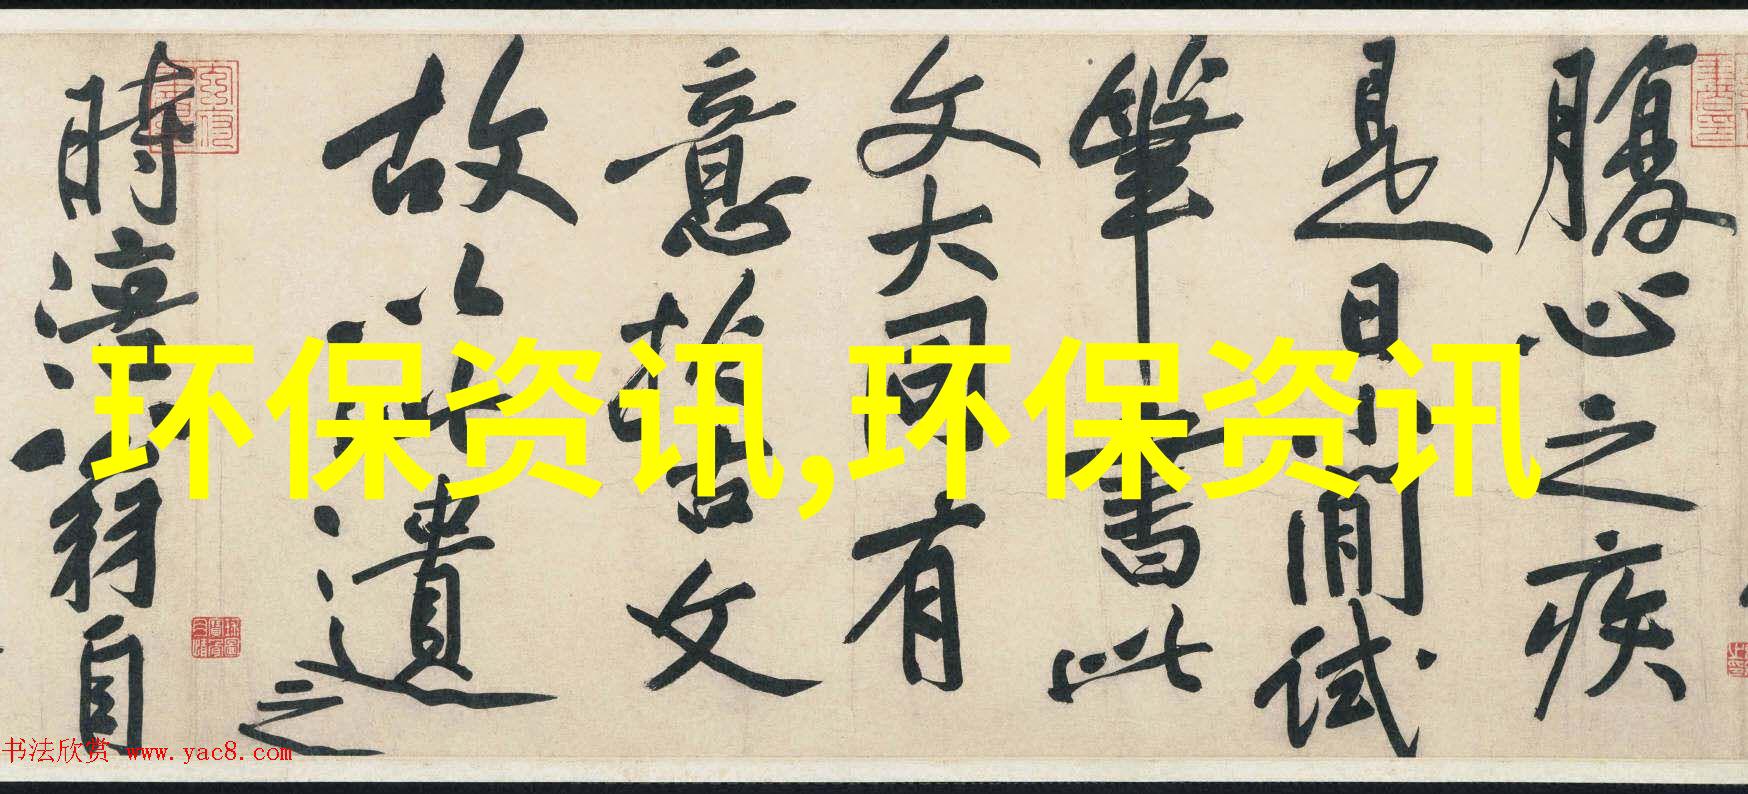 腹心之疾
是日小閒試
筆書此
文大同有
意於古文
故以此遺之
時涪翁自
环保资讯,环保资讯
书法欣赏 www.yac8.com